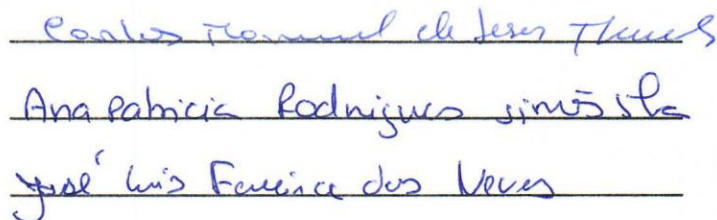 Carlos Manuel de Jesus
Ana Patricia Rodrigues Simões
José Luis Ferreira dos Neves